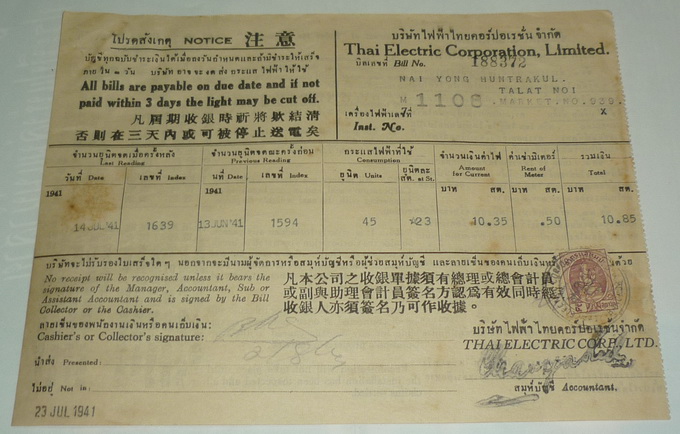 โปรดสังเกต NOTICE 注意
บัญชีทุกฉบับชำระเงินได้เมื่อถึงวันกำหนดและถ้ามิชำระให้เสร็จ
ภายใน ๓ วัน บริษัทอาจจะงดส่งกระแสไฟฟ้าให้ใช้
All bills are payable on due date and if not
paid within 3 days the light may be cut off.
凡屆期收銀時祈將欵結清
否則在三天內或可被停止送電矣
บริษัทไฟฟ้าไทยคอร์ปอเรชั่น จำกัด
Thai Electric Corporation, Limited.
บิลเลขที่ Bill No. 188372
NAI YONG HUNTRAKUL.
TALAT NOI
M 1106 MARKET.NO.939.
เครื่องไฟฟ้าเลขที่ 7 X
Inst. No.
จำนวนยูนิตจดเมื่อครั้งหลัง จำนวนยูนิตจดขณะครั้งก่อน กระแสไฟฟ้าที่ใช้ จำนวนเงินค่าไฟ ค่าเช่ามิเตอร์ รวมเงิน
Last Reading Previous Reading Consumption Amount for Current Rent of Meter Total
1941 1941
วันที่ Date เลขที่ Index วันที่ Date เลขที่ Index ยูนิต Units ยูนิตละ สต. at St. บาท สต. บาท สต. บาท สต.
14 JUL '41 1639 13 JUN '41 1594 45 23 10.35 .50 10.85
บริษัทจะไม่รับรองใบเสร็จใดๆ นอกจากจะมีนามผู้จัดการหรือสมุห์บัญชีหรือผู้ช่วยสมุห์บัญชี และลายเซ็นของคนเก็บเงิน ด้วย
No receipt will be recognised unless it bears the
signature of the Manager, Accountant, Sub or
Assistant Accountant and is signed by the Bill
Collector or the Cashier.
凡本公司之收銀單據須有總理或總會計員
或副與助理會計員簽名方認為有效同時經
收銀人亦須簽名乃可作收據。
ลายเซ็นของพนักงานเงินหรือคนเก็บเงิน:
Cashier's or Collector's signature:
บริษัทไฟฟ้าไทยคอร์ปอเรชั่นจำกัด
THAI ELECTRIC CORP., LTD.
นำส่ง Presented:
ไม่อยู่ Not in:
สมุห์บัญชี Accountant.
23 JUL 1941